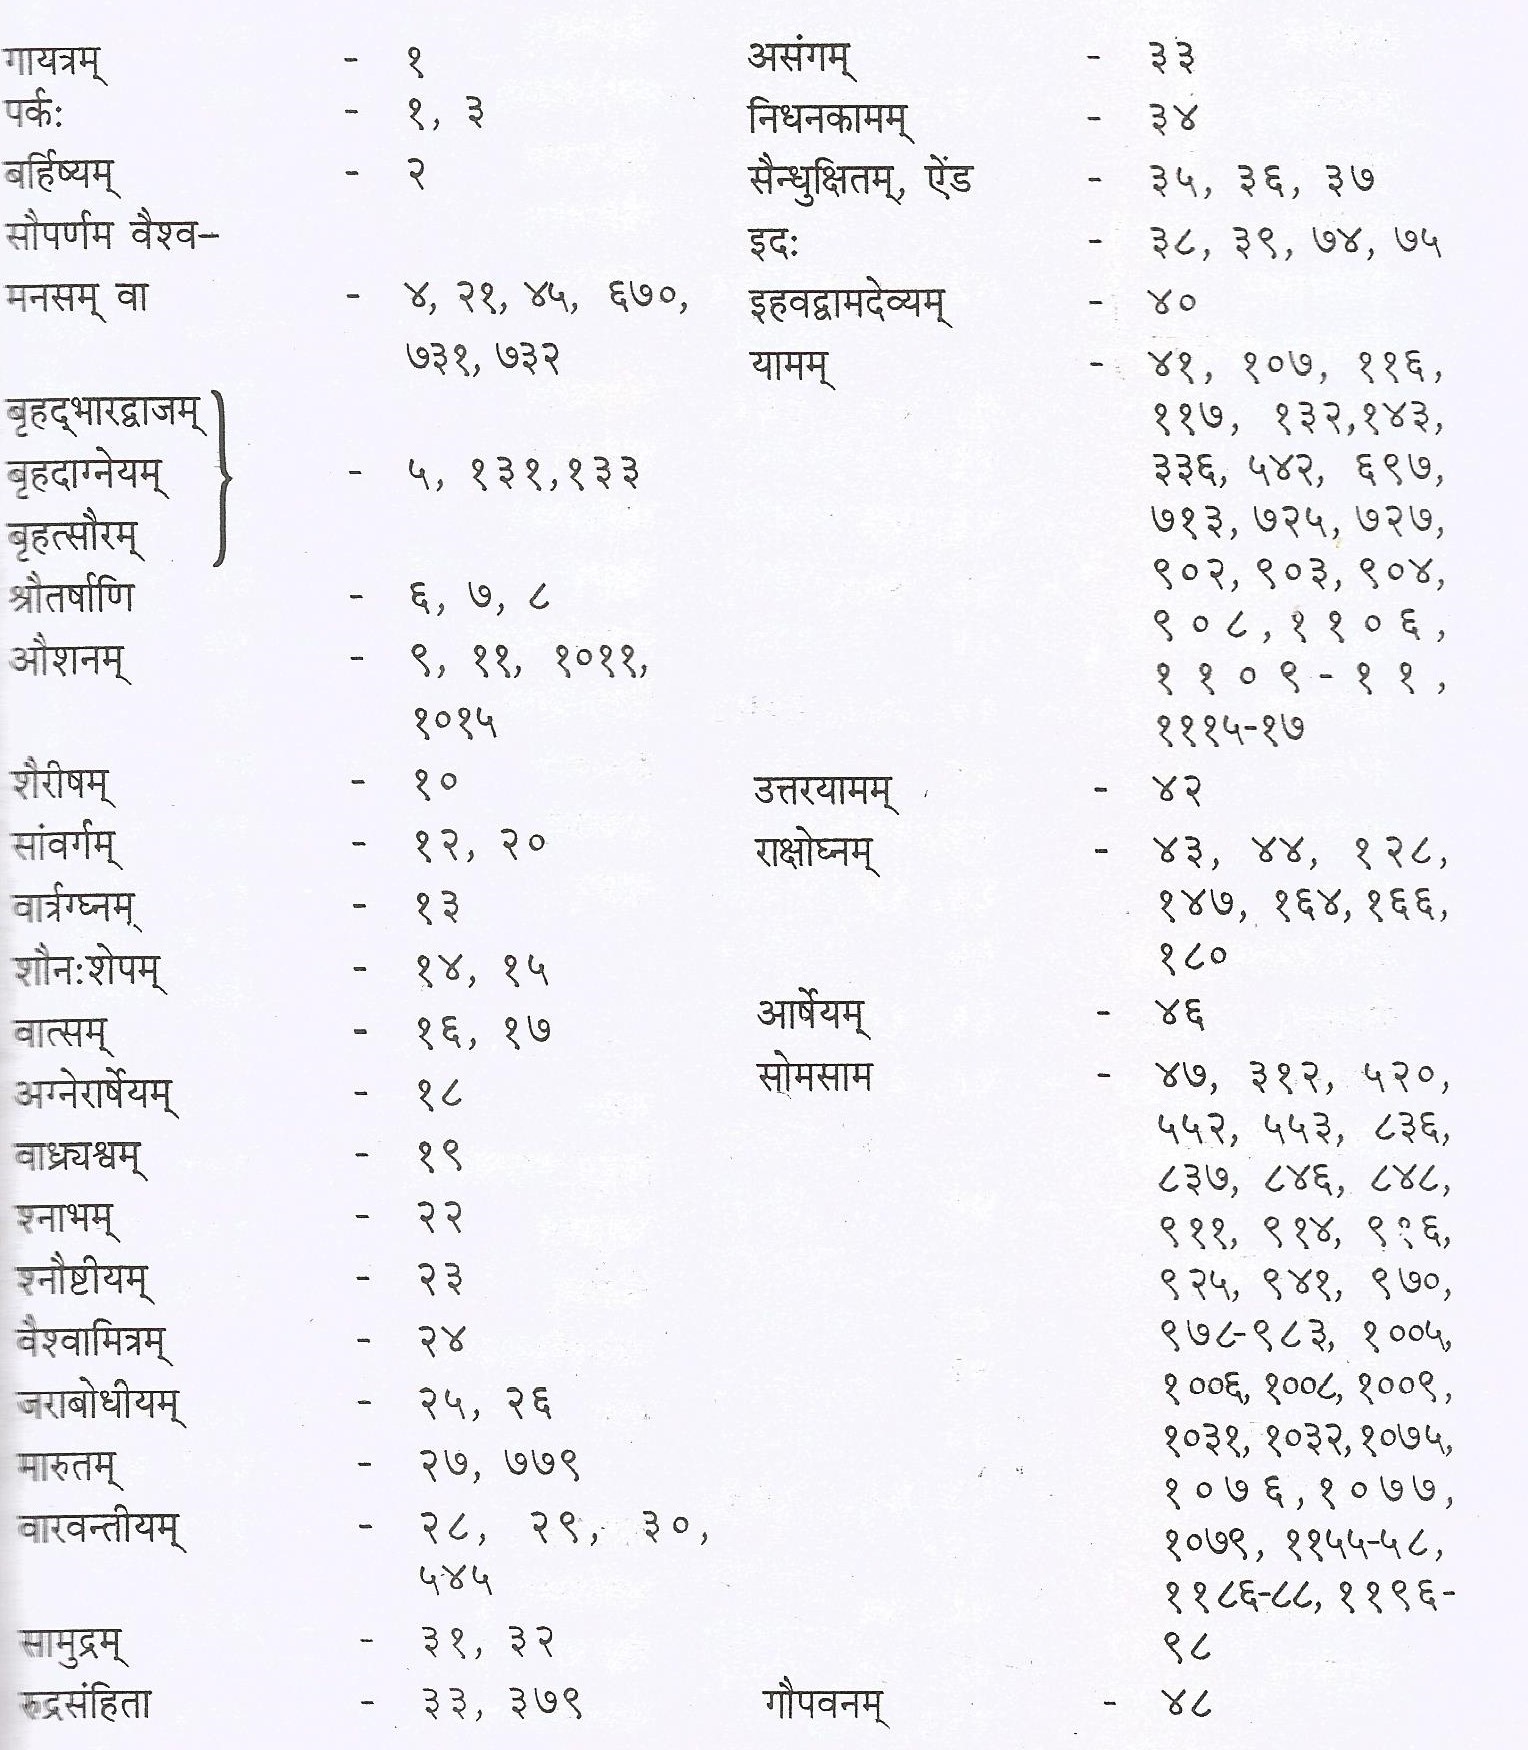 गायत्रम् - १
पर्क: - १, ३
बर्हिष्यम् - २
सौपर्णम वैश्व-
मनसम् वा - ४, २१, ४५, ६७०,
७३१, ७३२
बृहद्भारद्वाजम्
बृहदाग्नेयम् - ५, १३१,१३३
बृहत्सौरम्
श्रौतर्षाणि - ६, ७, ८
औशनम् - ९, ११, १०११,
१०१५
शैरीषम् - १०
सांवर्गम् - १२, २०
वार्त्रग्घ्नम् - १३
शौन:शेपम् - १४, १५
वात्सम् - १६, १७
अग्नेरार्षेयम् - १८
वाध्र्यश्वम् - १९
श्नाभम् - २२
श्नौष्टीयम् - २३
वैश्वामित्रम् - २४
जराबोधीयम् - २५, २६
मारुतम् - २७, ७७९
वारवन्तीयम् - २८, २९, ३०,
५४५
सामुद्रम् - ३१, ३२
रुद्रसंहिता - ३३, ३७९
असंगम् - ३३
निधनकामम् - ३४
सैन्धुक्षितम्, ऐंड - ३५, ३६, ३७
इद: - ३८, ३९, ७४, ७५
इहवद्वामदेव्यम् - ४०
यामम् - ४१, १०७, ११६,
११७, १३२,१४३,
३३६, ५४२, ६९७,
७१३, ७२५, ७२७,
९०२, ९०३, ९०४,
९०८, ११०६,
११०९-११,
१११५-१७
उत्तरयामम् - ४२
राक्षोघ्नम् - ४३, ४४, १२८,
१४७, १६४, १६६,
१८०
आर्षेयम् - ४६
सोमसाम - ४७, ३१२, ५२०,
५५२, ५५३, ८३६,
८३७, ८४६, ८४८,
९११, ९१४, ९१६,
९२५, ९४१, ९७०,
९७८-९८३, १००५,
१००६, १००८, १००९,
१०३१, १०३२,१०७५,
१०७६, १०७७,
१०७९, ११५५-५८,
११८६-८८, ११९६-
९८
गौपवनम् - ४८